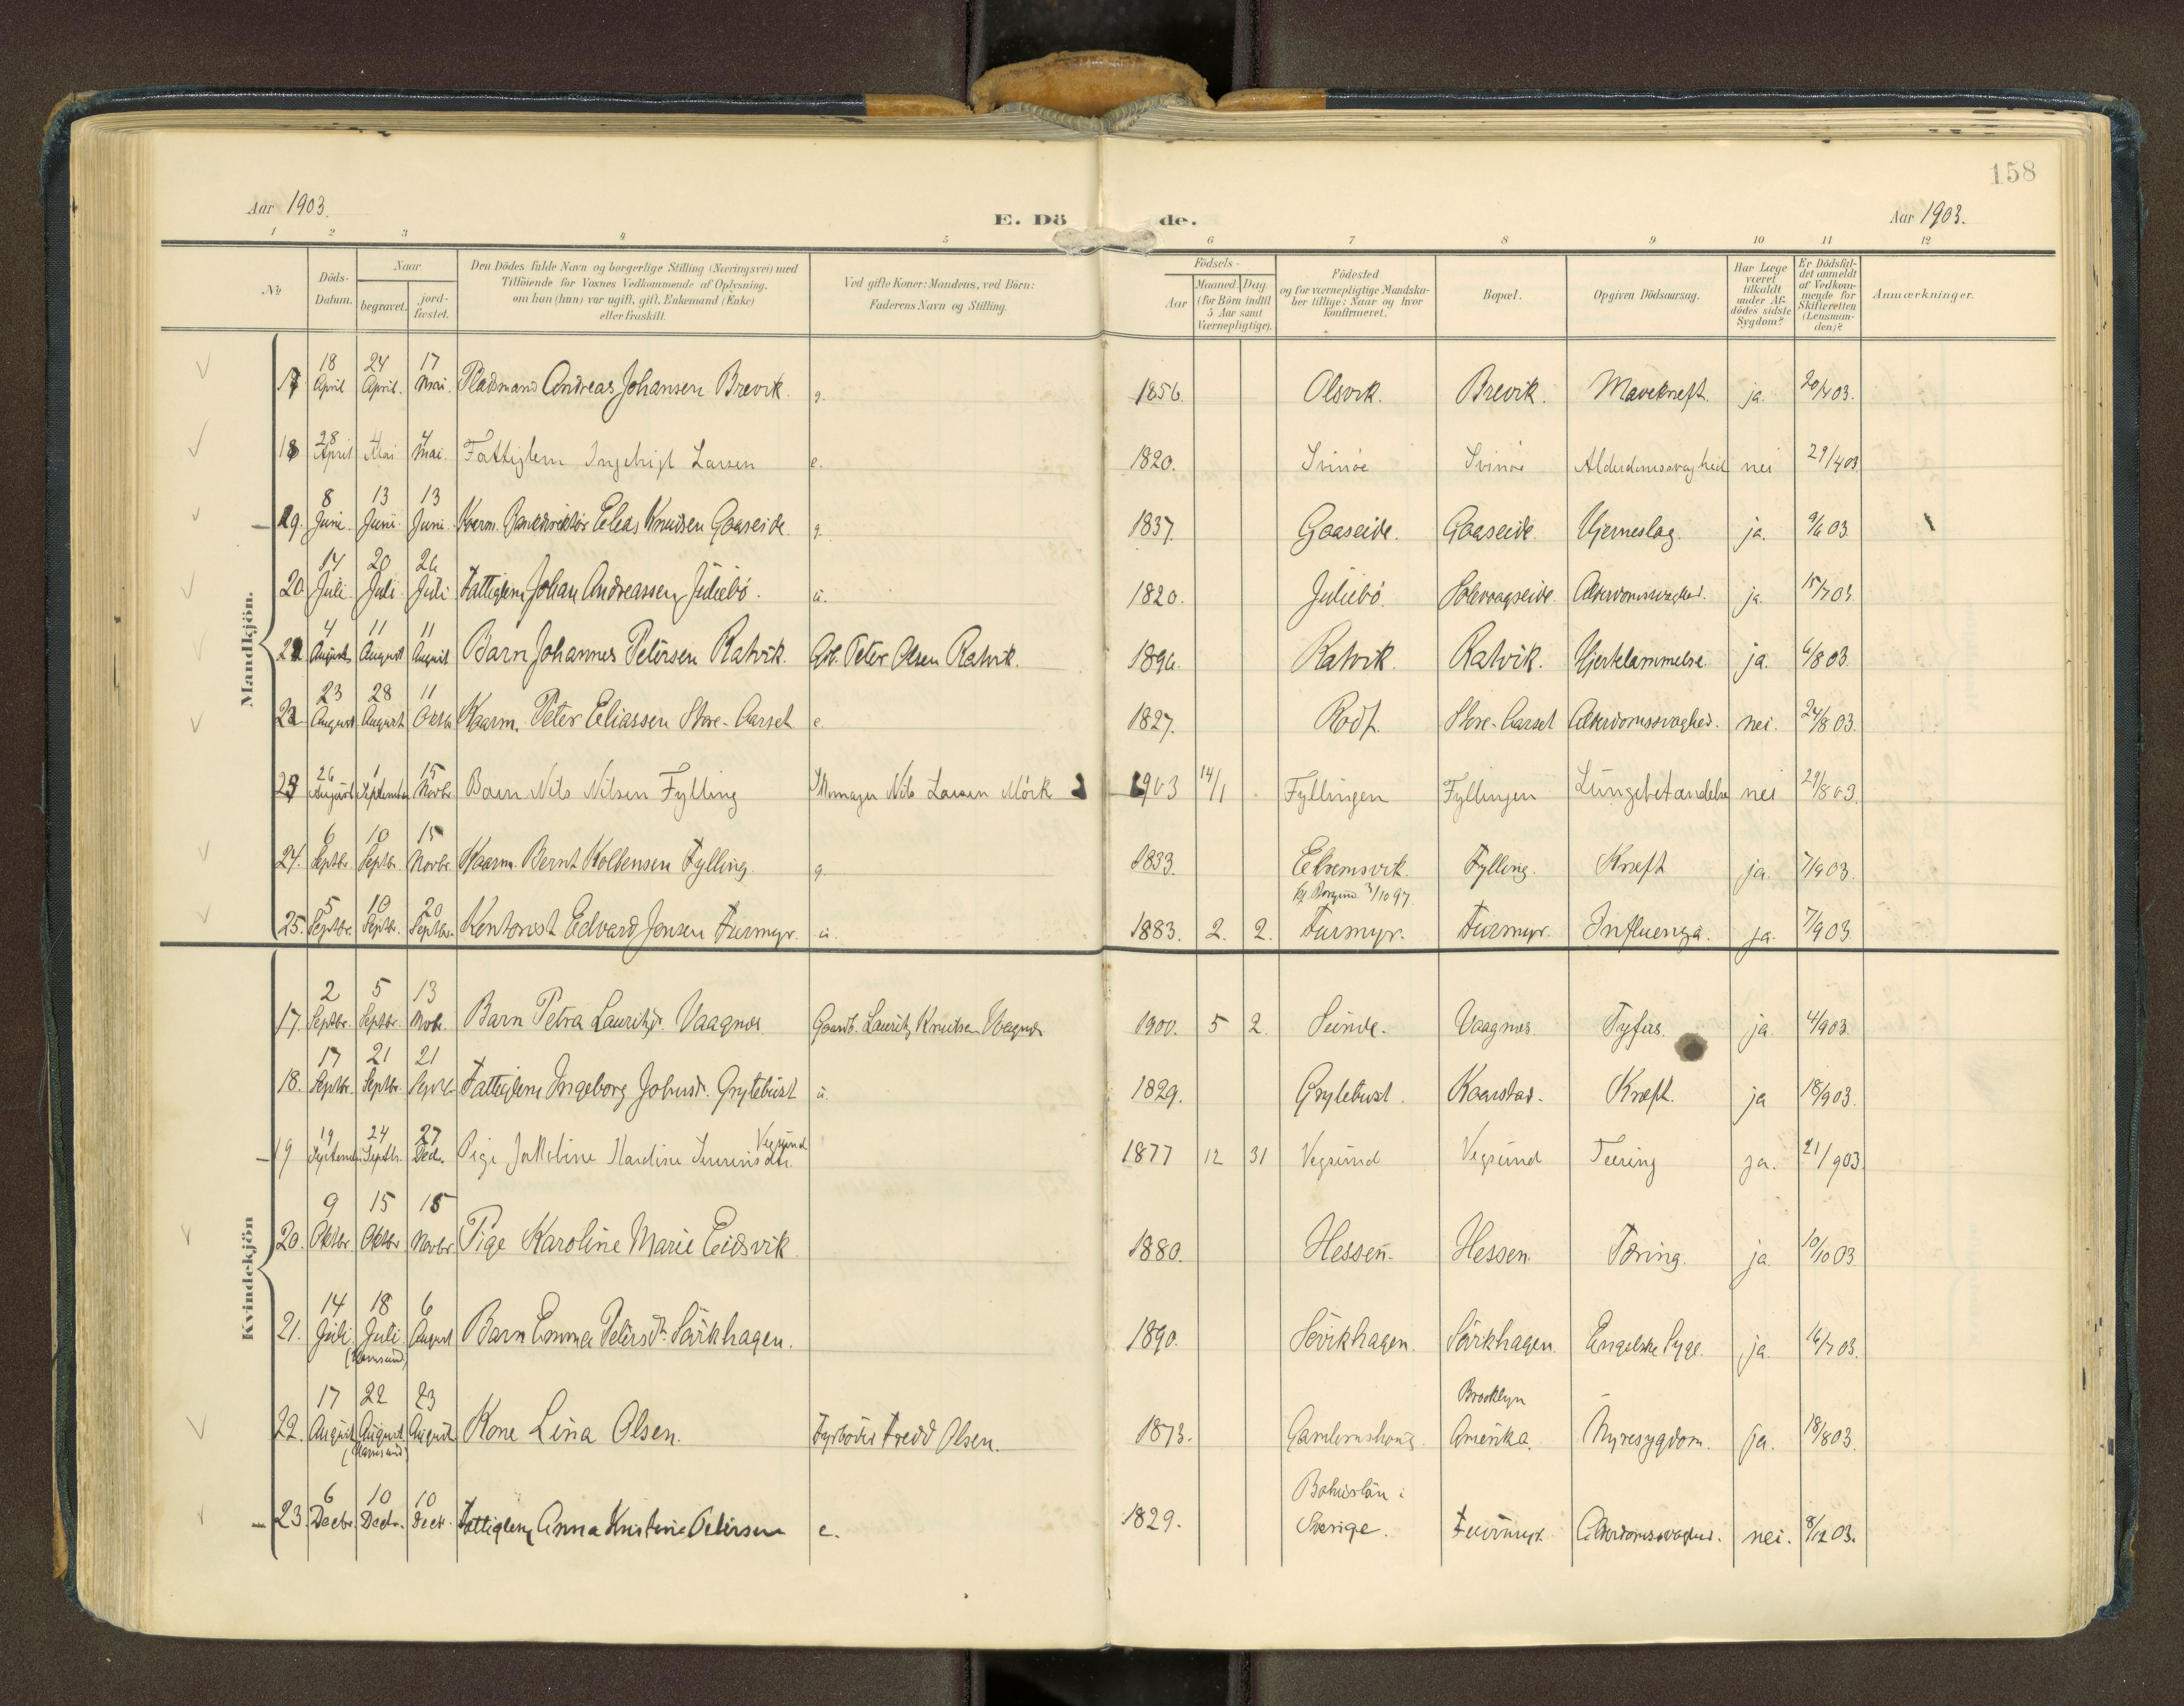 158
Aar 1903.
E. Dö de.
Aar 1903.
1 2 3 4 5 6 7 8 9 10 11 12
No
Döds-Datum.
Naar
begravet.
jord-fæstet.
Den Dödes fulde Navn og borgerlige Stilling (Næringsvei) med
Tilföiende for Voxnes Vedkommende af Oplysning,
om han (hun) var ugift, gift, Enkemand (Enke)
eller fraskilt.
Ved gifte Koner: Mandens, ved Börn:
Faderens Navn og Stilling.
Födsels-
Aar
Maaned. Dag.
(for Börn indtil
5 Aar samt
Værnepligtige).
Födested
og for værnepligtige Mandska-
ber tillige: Naar og hvor
Konfirmeret.
Bopæl.
Opgiven Dödsaarsag.
Har Læge
været
tilkaldt
under Af-
dödes sidste
Sygdom?
Er Dödsfal-
det anmeldt
af Vedkom-
mende for
Skifteretten
(Lensman-
den)?
Anmærkninger.
Mandkjön.
17 18 April 24 April. 17 Mai. Pladsmand Andreas Johansen Brevik. g. 1856. Olsvik. Brevik. Mavekræft. ja. 20/4 03.
18 28 April 4 Mai 4 Mai. Fattiglem Ingebrigt Larsen e. 1820. Svinöe Svinöe Alderdomssvaghed nei 29/4 03
19. 8 Juni. 13 Juni. 13 Juni. Elias Knudsen Gaaseide. g. 1837. Gaaseide. Gaaseide. Hjerneslag. ja. 9/6 03.
20. 14 Juli. 20 Juli 26 Juli Fattiglem Johan Andreassen Juliebö. u. 1820. Juliebö. Solevaagseide. Alderdomssvaghed. ja. 15/7 03.
21 4 August 11 August 11 August Barn Johannes Petersen Ratvik. Gbr. Peter Olsen Ratvik. 1896. Ratvik. Ratvik. Hjertelammelse. ja. 6/8 03.
22 23 August 28 August 11 Kaarm. Peter Eliassen Store-Aarset e. 1827. Store-Aarset Alderdomssvaghed. nei. 24/8 03.
23 26 August 1 September 15 Novbr. Barn Nils Nilsen Fylling Skomager Nils Larsen Mörk 1903 14/1 Fyllingen Fyllingen Lungebetændelse nei 29/8 03.
24. 6 Septbr. 10 Septbr. 15 Novbr. Kaarm. Bernt Kolbensen Fylling. g. 1833. Eikremsvik. Fylling. Kræft ja. 7/9 03.
25. 5 Septbr. 10 Septbr. 20 Septbr. Kontorist Edvard Jensen Furmyr. u. 1883. 2. 2. Borgund 3/10 97. Furmyr. Furmyr. Influenza. ja. 7/9 03.
Kvindekjön
17. 2 Septbr. 5 Septbr. 13 Barn Petra Lauritzdr. Vaagnes. Gaardb. Lauritz Knutsen Vaagnes 1900. 5 2. Sunde. Vaagnes. Tyfus. ja 4/9 03.
18. 17 Septbr. 21 Septbr. 21 Septbr. Fattiglem Ingeborg Johnsdr. Grytebust u. 1829. Grytebust. Kaarstad. Kræft. ja 18/9 03.
19 19 September 24 Septbr. 27 Decbr. Pige Jakobine Vegsund 1877 12 31 Vegsund Vegsund Tæring ja. 21/9 03.
20. 9 Oktbr. 15 Oktbr 15 Novbr Pige Karoline Marie Eidsvik. 1880. Hessen. Hessen. Tæring. ja. 10/10 03
21. 14 Juli. 18 Juli. 6 August Barn Emma Petersdr. Sörkhagen. 1890. Sörkhagen. Sörkhagen. Engelske Syge. ja. 16/7 03.
(Hamsund)
22. 17 August 22 August 23 August Kone Lina Olsen. Fyrböder Fredd Olsen. 1873. Brooklyn Amerika. Nyresygdom. ja. 18/8 03.
(Hamsund)
23. 6 Decbr. 10 Decbr. 10 Decbr. Fattiglem Anna Kristine Petersen e. 1829. Bohuslän i Sverige. Furmyr. Alderdomssvaghed. nei. 8/12 03.